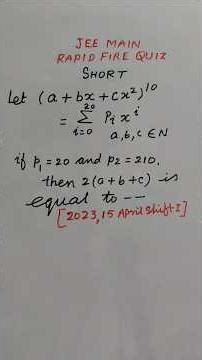 JEE MAIN
RAPID FIRE QUIZ
SHORT
Let (a+bx+cx²)¹⁰
= ∑ᵢ₌₀²⁰ Pᵢ xⁱ
a,b,c ∈ N
if P₁=20 and P₂=210,
then 2(a+b+c) is
equal to --
[2023,15 April Shift I]